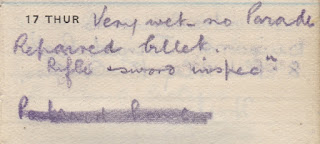 17 THUR Very wet no Parade
Repaired billet.
Rifle & sword inspecⁿ